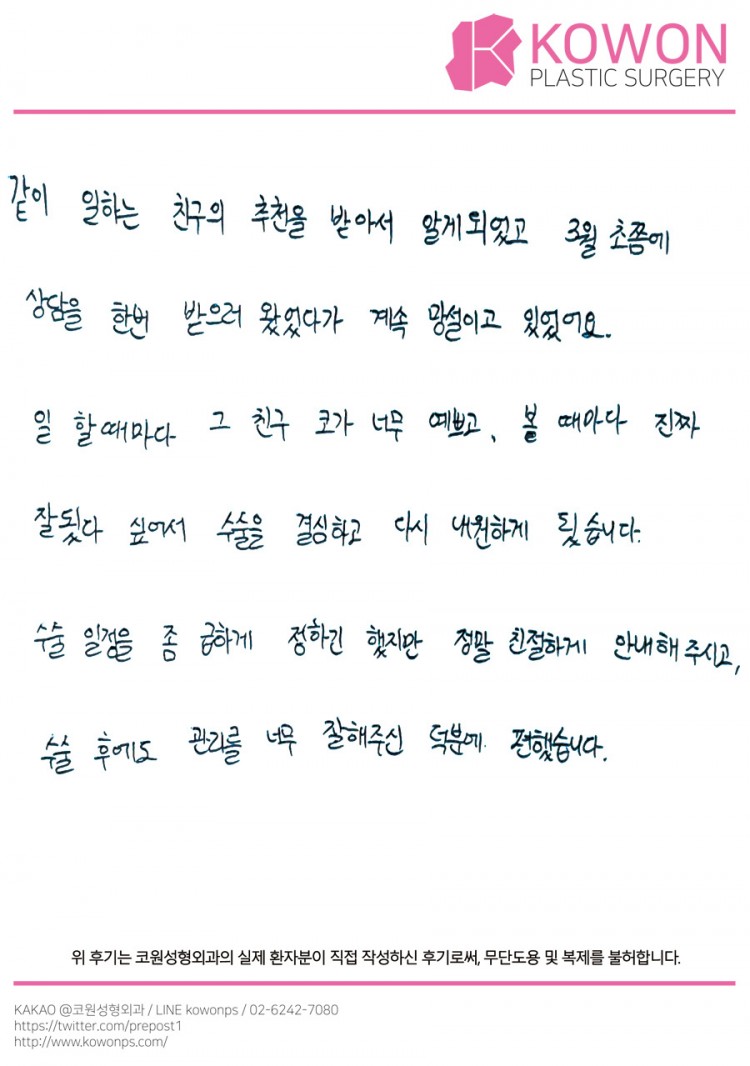 KOWON
PLASTIC SURGERY
같이 일하는 친구의 추천을 받아서 알게되었고 3월 초쯤에
상담을 한번 받으러 왔었다가 계속 망설이고 있었어요.
일 할때마다 그 친구 코가 너무 예쁘고, 볼 때마다 진짜
잘됬다 싶어서 수술을 결심하고 다시 내원하게 됬습니다.
수술 일정을 좀 급하게 정하긴 했지만 정말 친절하게 안내해주시고,
수술 후에도 관리를 너무 잘해주신 덕분에 편했습니다.
위 후기는 코원성형외과의 실제 환자분이 직접 작성하신 후기로써, 무단도용 및 복제를 불허합니다.
KAKAO @코원성형외과 / LINE kowonps / 02-6242-7080
https://twitter.com/prepost1
http://www.kowonps.com/